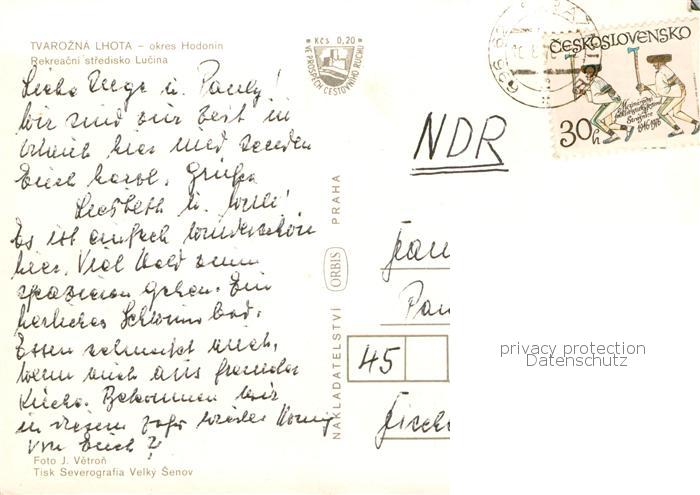 TVAROŽNÁ LHOTA – okres Hodonín
Rekreační středisko Lučina
Kčs 0,20
VE PROSPĚCH CESTOVNÍHO RUCHU
ČESKOSLOVENSKO
Strážnice
1946-1976
30h
Liebe Inge u. Pauly!
Wir sind zur Zeit in
Urlaub hier und senden
Euch herzl. Grüße
Liesbeth u. Willi!
Es ist einfach wunderschön
hier. Viel Wald zum
spazieren gehen. Ein
herrliches Schwimmbad.
Essen schmeckt auch,
wenn auch aus fremder
Küche. Bekommen wir
in diesem Jahr wieder Honig
von Euch?
NDR
Frau
Pau
45
NAKLADATELSTVÍ ORBIS PRAHA
privacy protection
Datenschutz
Foto J. Větroň
Tisk Severografia Velký Šenov